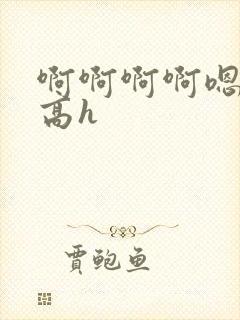 啊啊啊啊嗯
高h
贾鲍鱼